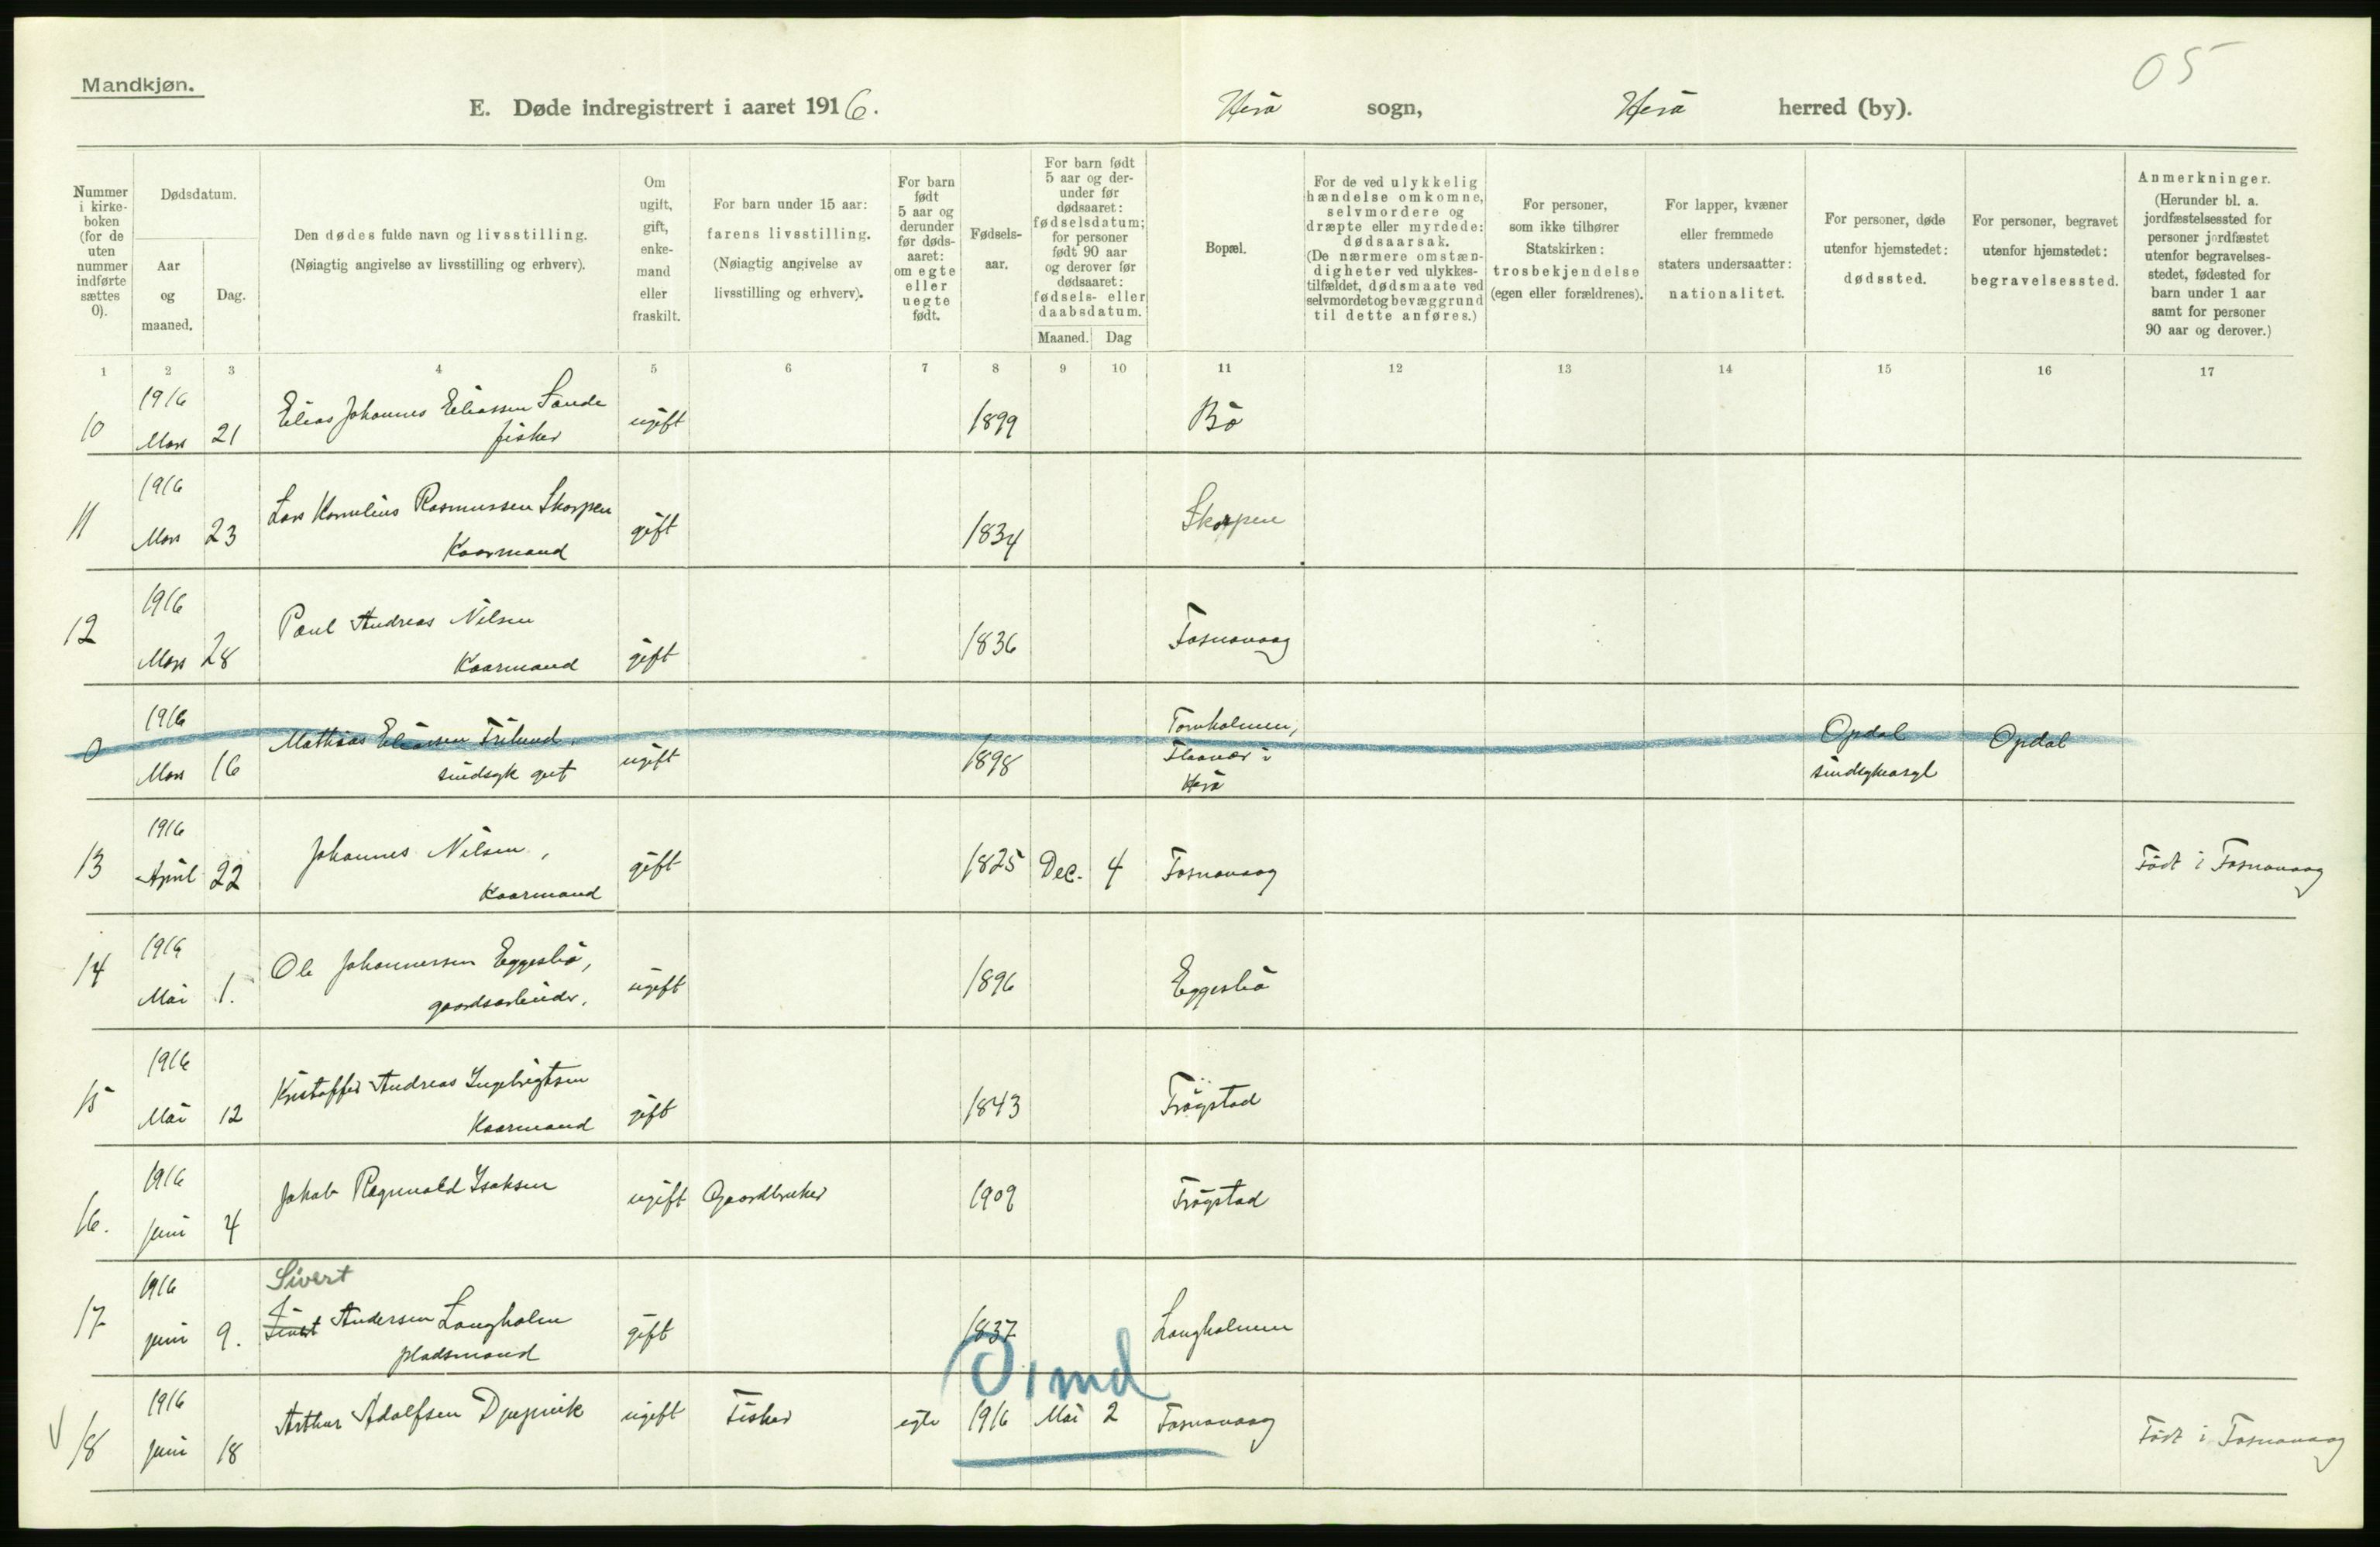 05
Mandkjøn.
E. Døde indregistrert i aaret 1916. Herö sogn, Herö herred (by).
Nummer i kirkeboken (for de uten nummer indførte sættes 0).
Dødsdatum.
Aar og maaned.
Dag.
Den dødes fulde navn og livsstilling.
(Nøiagtig angivelse av livsstilling og erhverv).
Om ugift, gift, enkemand eller fraskilt.
For barn under 15 aar: farens livsstilling.
(Nøiagtig angivelse av livsstilling og erhverv).
For barn født 5 aar og derunder før dødsaaret: om egte eller uegte født.
Fødselsaar.
For barn født 5 aar og derunder før dødsaaret: fødselsdatum; for personer født 90 aar og derover før dødsaaret: fødsels- eller daabsdatum.
Maaned. Dag
Bopæl.
For de ved ulykkelig hændelse omkomne, selvmordere og dræpte eller myrdede: dødsaarsak.
(De nærmere omstændigheter ved ulykkestilfældet, dødsmaate ved selvmordet og bevæggrund til dette anføres.)
For personer, som ikke tilhører Statskirken: trosbekjendelse (egen eller forældrenes).
For lapper, kvæner eller fremmede staters undersaatter: nationalitet.
For personer, døde utenfor hjemstedet: dødssted.
For personer, begravet utenfor hjemstedet: begravelsessted.
Anmerkninger.
(Herunder bl. a. jordfæstelsessted for personer jordfæstet utenfor begravelsesstedet, fødested for barn under 1 aar samt for personer 90 aar og derover.)
1 2 3 4 5 6 7 8 9 10 11 12 13 14 15 16 17
10 1916 Mars 21 Elias Johannes Eliassen Sande fisker ugift 1899 Bö
11 1916 Mars 23 Lars Kornelius Rasmussen Skorpen Kaarmand gift 1834 Skorpen
12 1916 Mars 28 Paul Andreas Nilsen Kaarmand gift 1836 Fosnavaag
0 1916 Mars 16 Mathias Eliassen sindsyk gut ugift 1898 Tornholmen, Flaavær i Herö Opdal sindsykeasyl Opdal
13 1916 April 22 Johannes Nilsen, Kaarmand gift 1825 Dec. 4 Fosnavaag Födt i Fosnavaag
14 1916 Mai 1. Ole Johannessen Eggesbö, gaardsarbeider. ugift 1896 Eggesbö
15 1916 Mai 12 Kristoffer Andreas Ingebrigtsen Kaarmand gift 1843 Frögstad
16. 1916 juni 4 Jakob Ragnvald Isaksen ugift Gaardbruker 1909 Frögstad
Sivert
17 1916 juni 9. Sivert Andersen Langholm pladsmand gift 1837 Langholmen
0 1 md
18 1916 juni 18 Arthur Adolfsen Djupvik ugift Fisker egte 1916 Mai 2 Fosnavaag Födt i Fosnavaag